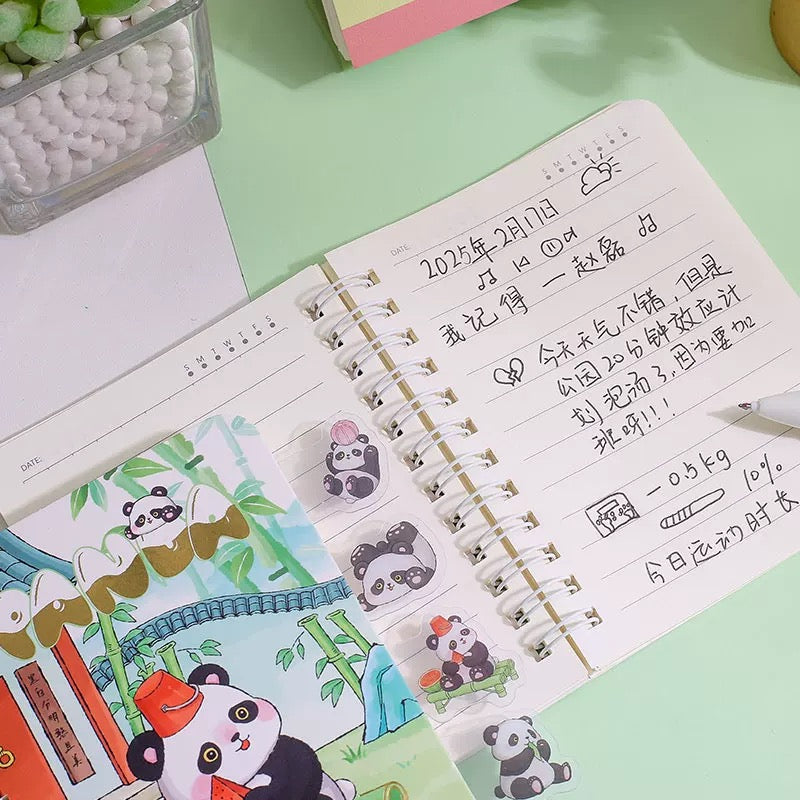 S M T W T F S
DATE:
2025年2月17日
我记得 — 赵磊
今天天气不错，但是
公园20分钟效应计
划泡汤了，因为要加
班呀!!!
-0.5kg
10%
今日运动时长
S M T W T F S
DATE:
黑白分明憨且美